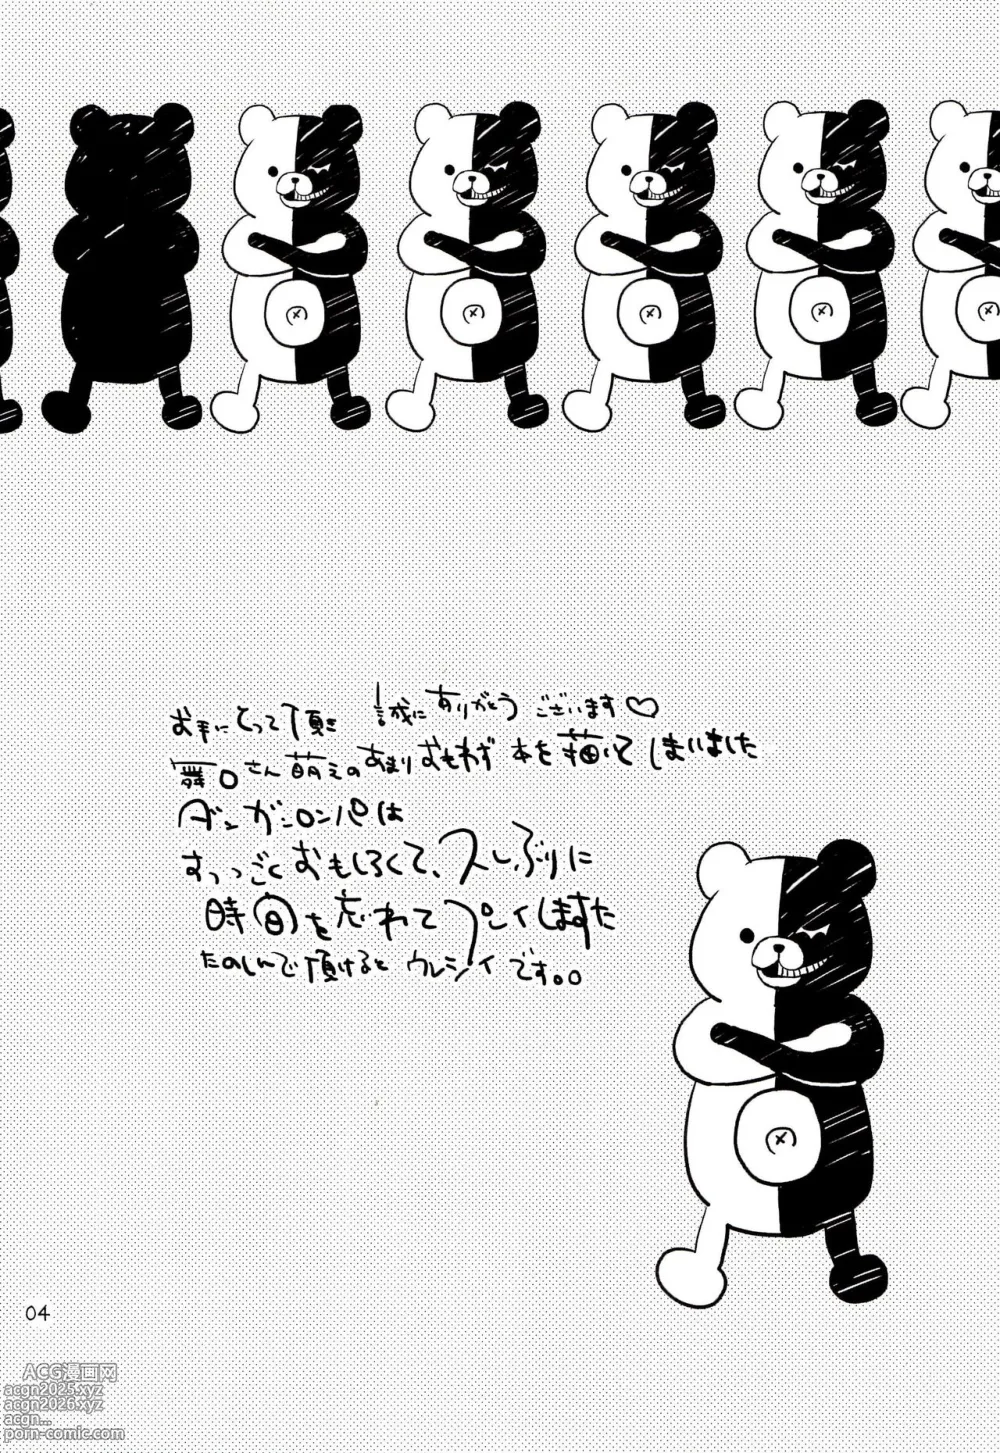 お手にとって頂き 誠にありがとうございます♡
舞○さん萌えのあまりおもわず本を描いてしまいました
ダンガンロンパは
すっっごくおもしろくて、久しぶりに
時間を忘れてプレイしますた
たのしんで頂けるとウレシイです。。
04
ACG漫画网
acgn2025.xyz
acgn2026.xyz
acgn...
porn-comic.com